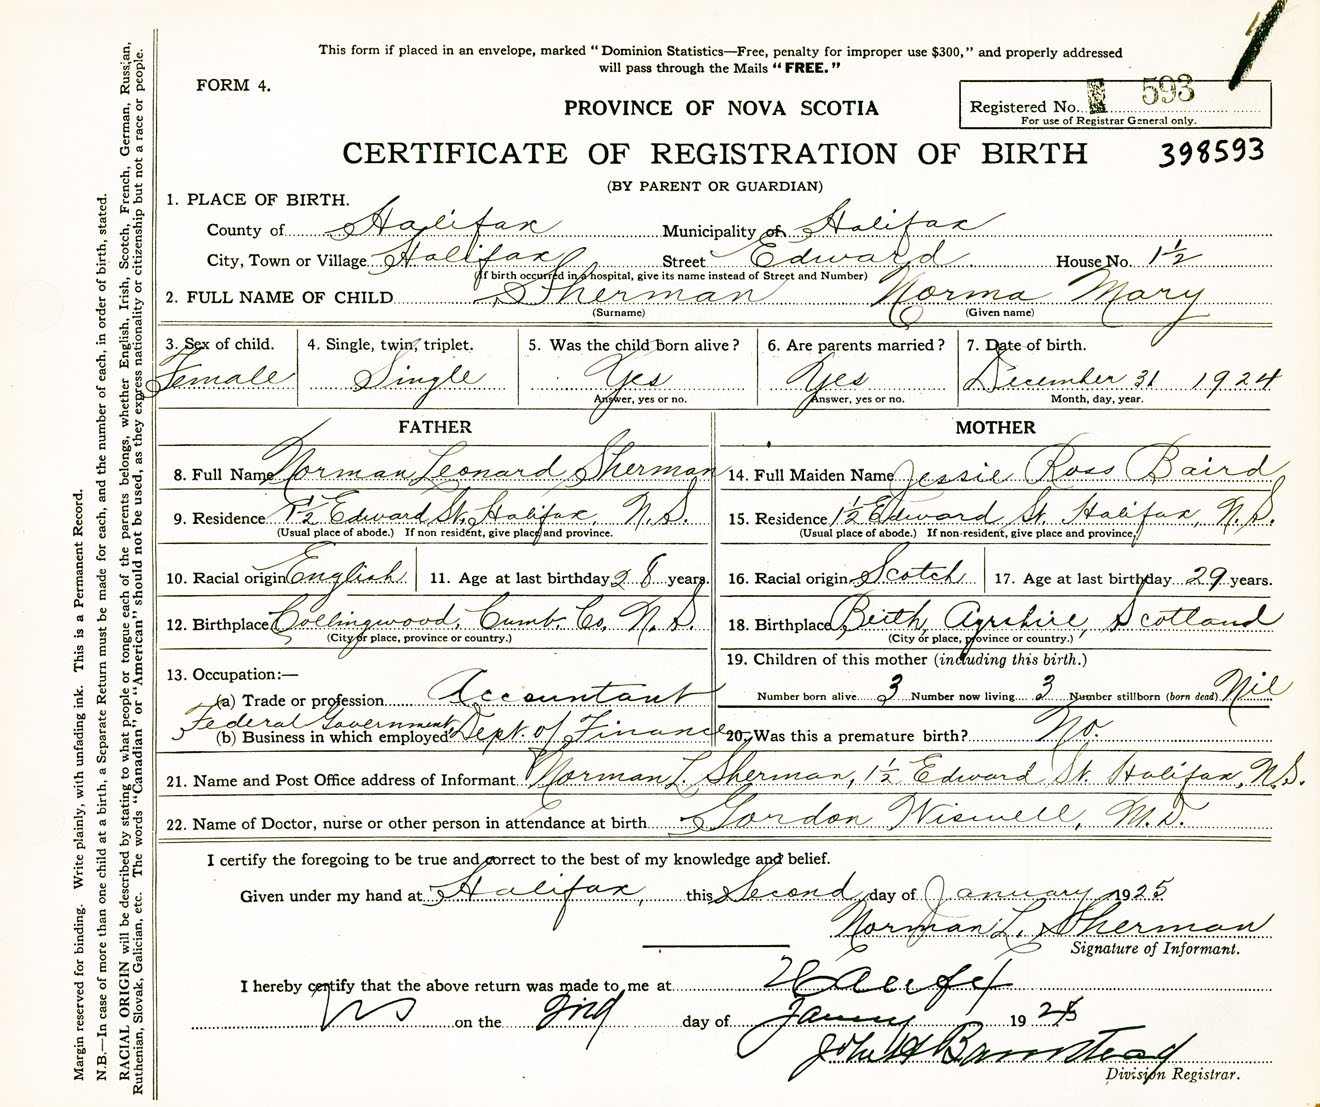 This form if placed in an envelope, marked "Dominion Statistics—Free, penalty for improper use $300," and properly addressed
will pass through the Mails "FREE."
FORM 4.
Registered No. 593
For use of Registrar General only.
PROVINCE OF NOVA SCOTIA
CERTIFICATE OF REGISTRATION OF BIRTH 398593
(BY PARENT OR GUARDIAN)
1. PLACE OF BIRTH.
County of Halifax Municipality of Halifax
City, Town or Village Halifax Street Edward House No. 1½
(If birth occurred in a hospital, give its name instead of Street and Number)
2. FULL NAME OF CHILD Sherman Norma Mary
(Surname) (Given name)
3. Sex of child. 4. Single, twin, triplet. 5. Was the child born alive? 6. Are parents married? 7. Date of birth.
Female Single Yes Yes December 31 1924
Answer, yes or no. Answer, yes or no. Month, day, year.
FATHER MOTHER
8. Full Name Norman Leonard Sherman 14. Full Maiden Name Jessie Ross Baird
9. Residence 1½ Edward St. Halifax, N.S. 15. Residence 1½ Edward St. Halifax, N.S.
(Usual place of abode.) If non resident, give place and province. (Usual place of abode.) If non-resident, give place and province.
10. Racial origin English 11. Age at last birthday 28 years. 16. Racial origin Scotch 17. Age at last birthday 29 years.
12. Birthplace Collingwood, Cumb. Co. N.S. 18. Birthplace Beith, Ayrshire, Scotland
(City or place, province or country.) (City or place, province or country.)
13. Occupation:— 19. Children of this mother (including this birth.)
(a) Trade or profession Accountant Number born alive 3 Number now living 3 Number stillborn (born dead) Nil
Federal Government
(b) Business in which employed Dept. of Finance 20. Was this a premature birth? No.
21. Name and Post Office address of Informant Norman L. Sherman, 1½ Edward St. Halifax, N.S.
22. Name of Doctor, nurse or other person in attendance at birth Gordon Wiswell, M.D.
I certify the foregoing to be true and correct to the best of my knowledge and belief.
Given under my hand at Halifax, this Second day of January 1925
Norman L. Sherman
Signature of Informant.
I hereby certify that the above return was made to me at Halifax
NS on the 2nd day of January 1925
John H Barnstead
Division Registrar.
Margin reserved for binding. Write plainly, with unfading ink. This is a Permanent Record.
N.B.—In case of more than one child at a birth, a Separate Return must be made for each, and the number of each, in order of birth, stated.
RACIAL ORIGIN will be described by stating to what people or tongue each of the parents belongs, whether English, Irish, Scotch, French, German, Russian,
Ruthenian, Slovak, Galician, etc. The words "Canadian" or "American" should not be used, as they express nationality or citizenship but not a race or people.